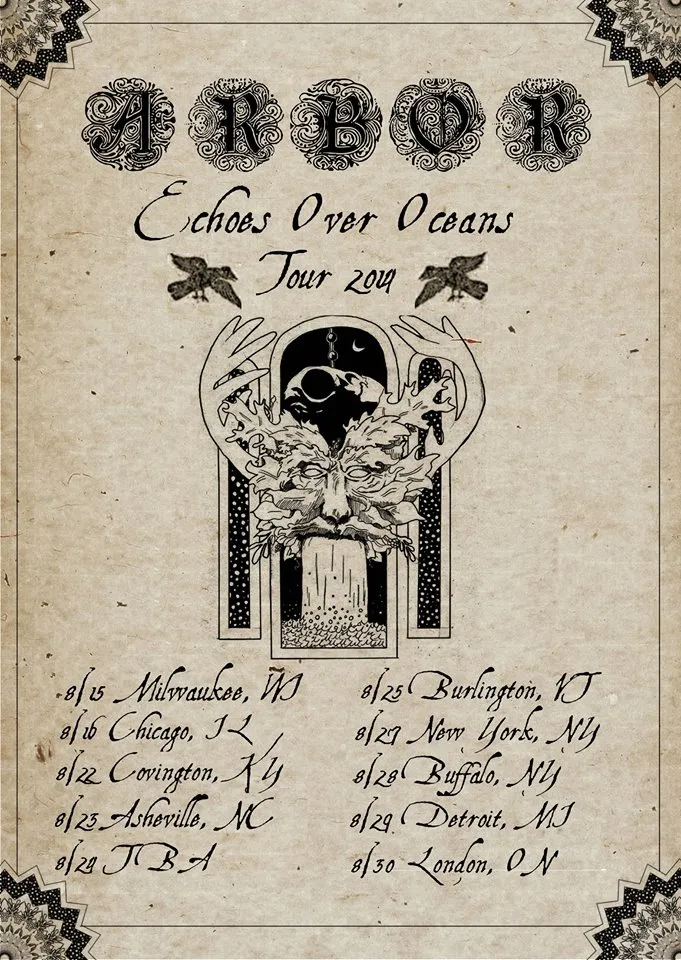 ARBOR
Echoes Over Oceans
Tour 2014
8/15 Milwaukee, WI
8/16 Chicago, IL
8/22 Covington, KY
8/23 Asheville, NC
8/24 TBA
8/25 Burlington, VT
8/27 New York, NY
8/28 Buffalo, NY
8/29 Detroit, MI
8/30 London, ON